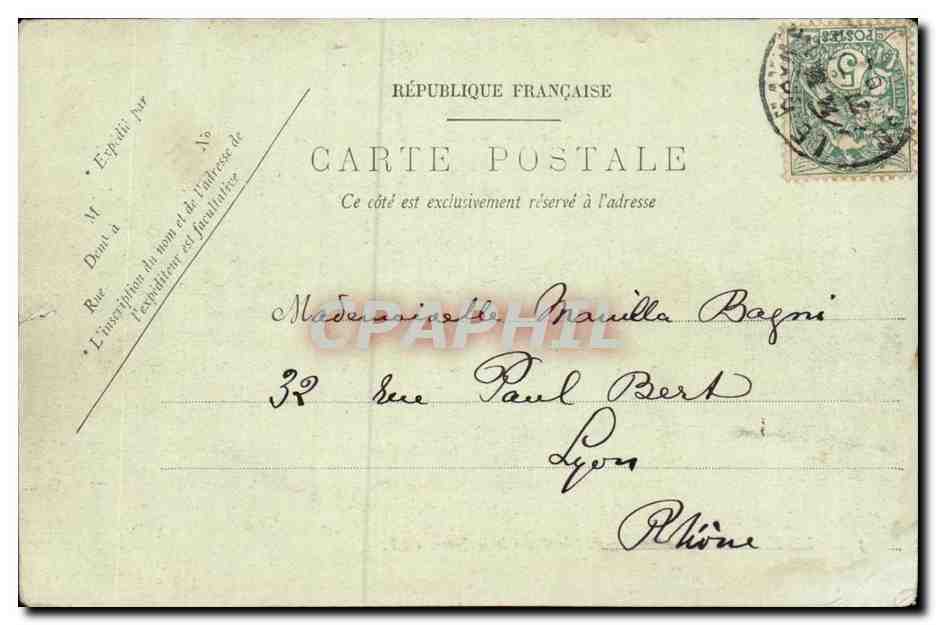 RÉPUBLIQUE FRANÇAISE
CARTE POSTALE
Ce côté est exclusivement réservé à l'adresse
* Expédié par
M
No
Demt à
Rue
* L'inscription du nom et de l'adresse de
l'expéditeur est facultative
POSTES
5
CPAPHIL
Mademoiselle Manilla Bagni
32 rue Paul Bert
Lyon
Rhône